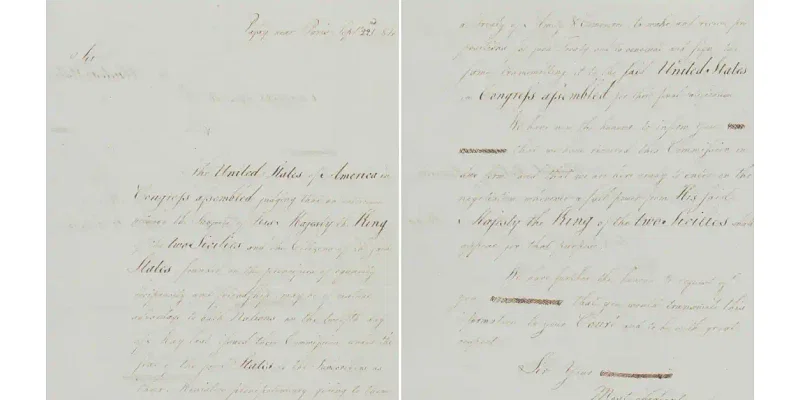 Passy near Paris Sept 22d
Sir
The United States of America in
Congress assembled judging that an intercourse
between the Subjects of His Majesty the King
of the two Sicilies and the Citizens of the said
States founded on the principles of equality
reciprocity and friendship may be of mutual
advantage to both Nations on the twelfth day
of May last issued their Commission under the
seal of the said States to the
giving to them
a Treaty of Amity & Commerce to make and receive
propositions for such Treaty and to conclude and sign the
same transmitting it to the said United States
in Congress assembled for their final ratification
We have now the honour to inform your
that we have received this Commission in
due form and that we are here ready to enter on the
negotiation whenever a full power from His said
Majesty the King of the two Sicilies shall
appear for that purpose
We have further the honour to request of
you that you would transmit this
information to your Court and to be with great
respect
Sir Your
Most obedient